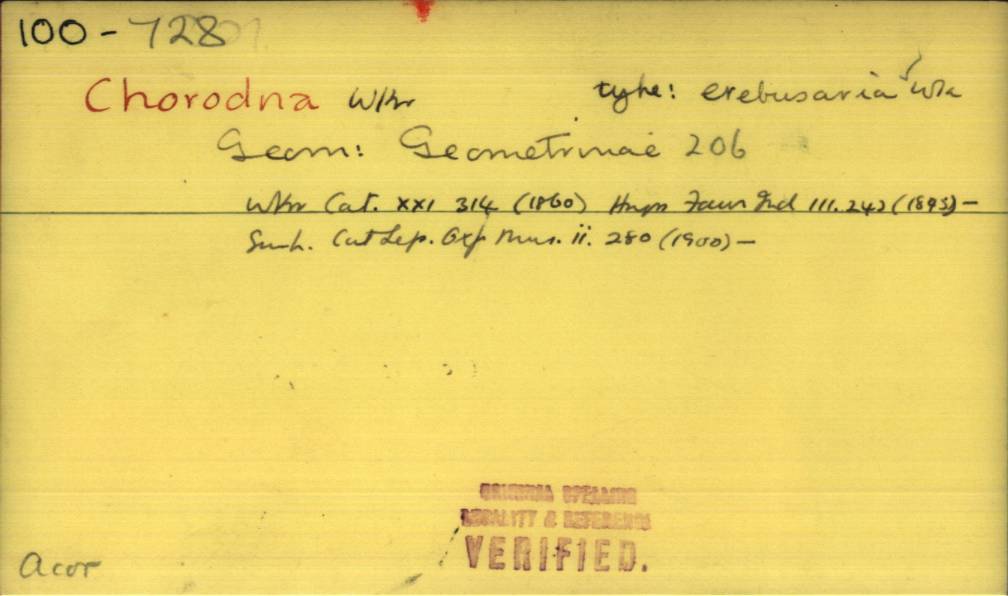 100 - 728
Chorodna Wkr type: erebusaria Wk
Geom: Geometrinae 206
Wkr Cat. XXI 314 (1860) Hmps Faun Ind III. 242 (1895) —
Swh. Cat Lep. Oxf Mus. ii. 280 (1900) —
ORIGINAL SPELLING
LOCALITY & REFERENCE
VERIFIED.
Acor